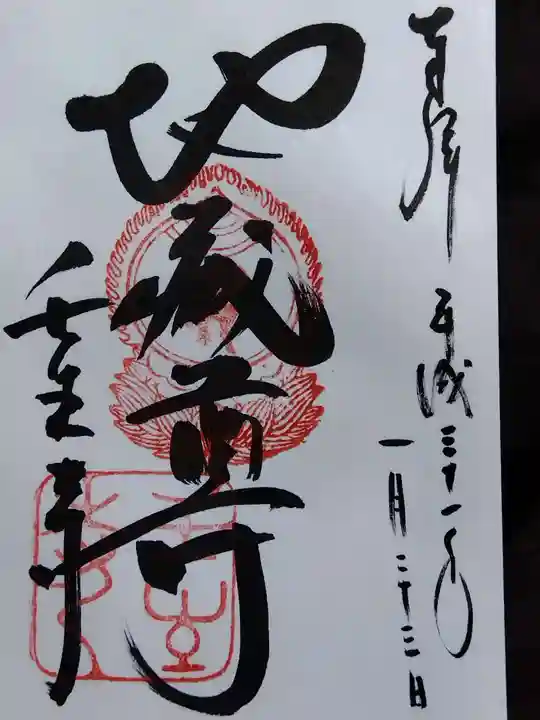 奉拝
平成三十一年
一月二十三日
地蔵尊
壬生寺